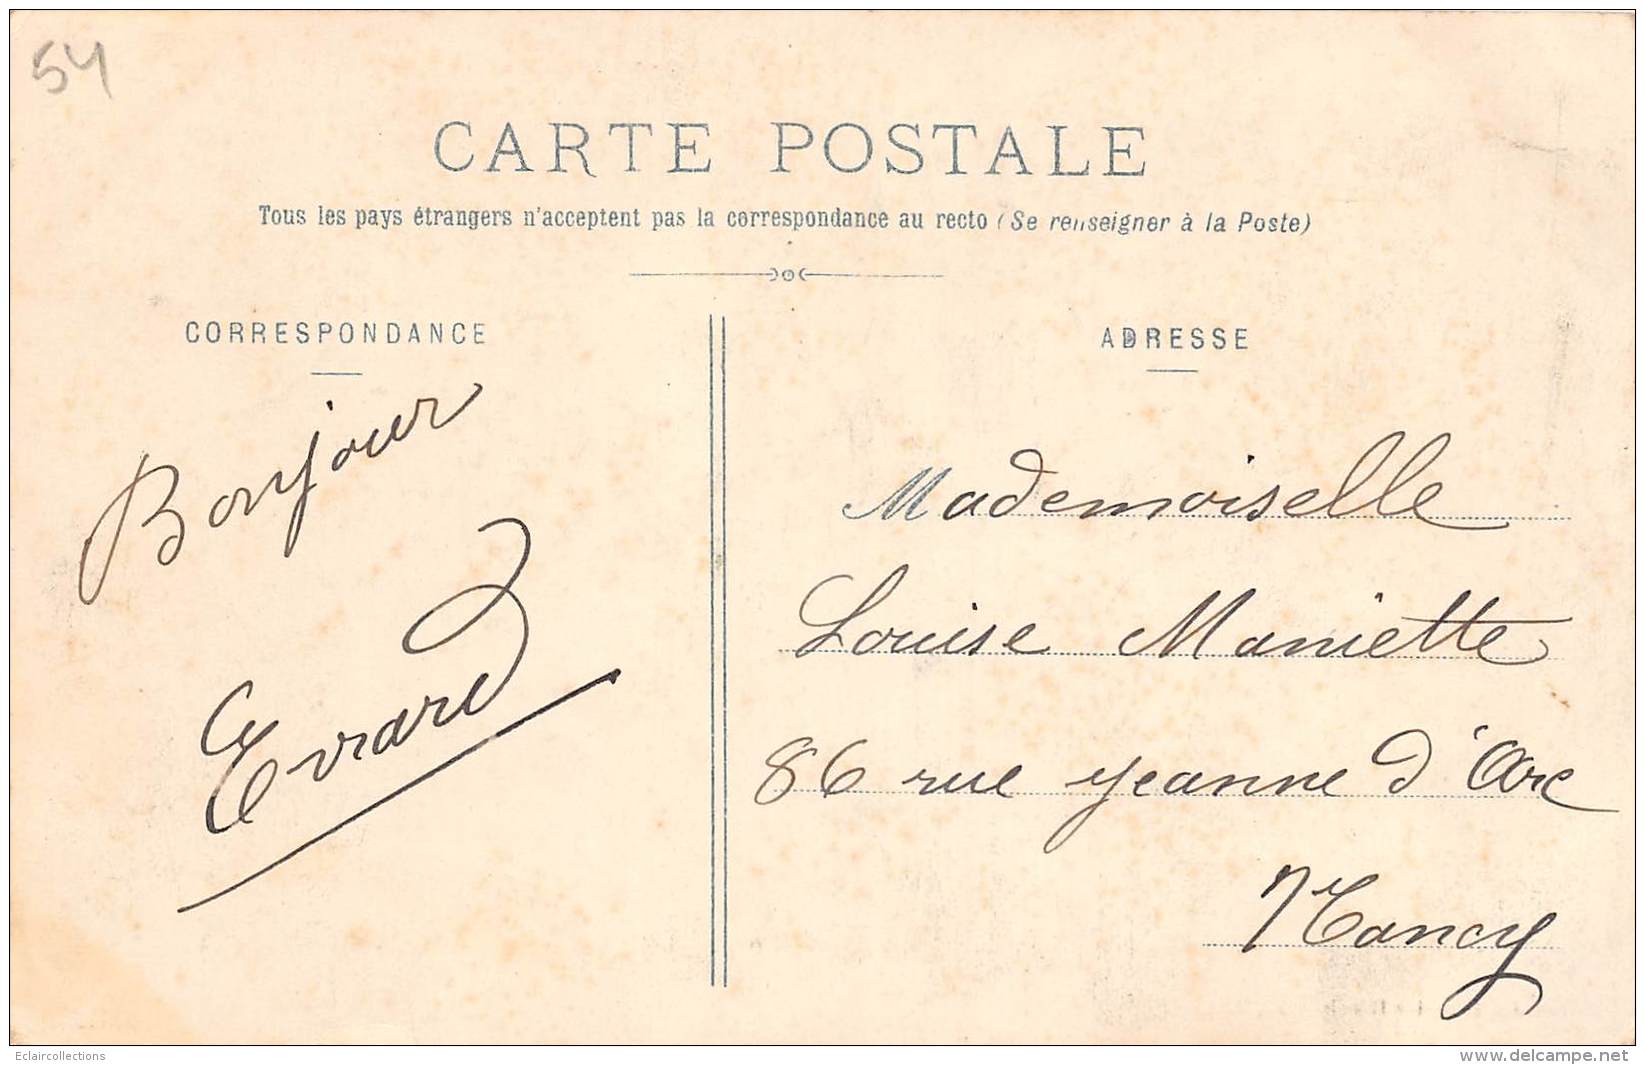 54
CARTE POSTALE
Tous les pays étrangers n'acceptent pas la correspondance au recto (Se renseigner à la Poste)
CORRESPONDANCE
Bonjour
Evrard
ADRESSE
Mademoiselle
Louise Maniette
86 rue Jeanne d'Arc
Nancy
Eclaircollections
www.delcampe.net